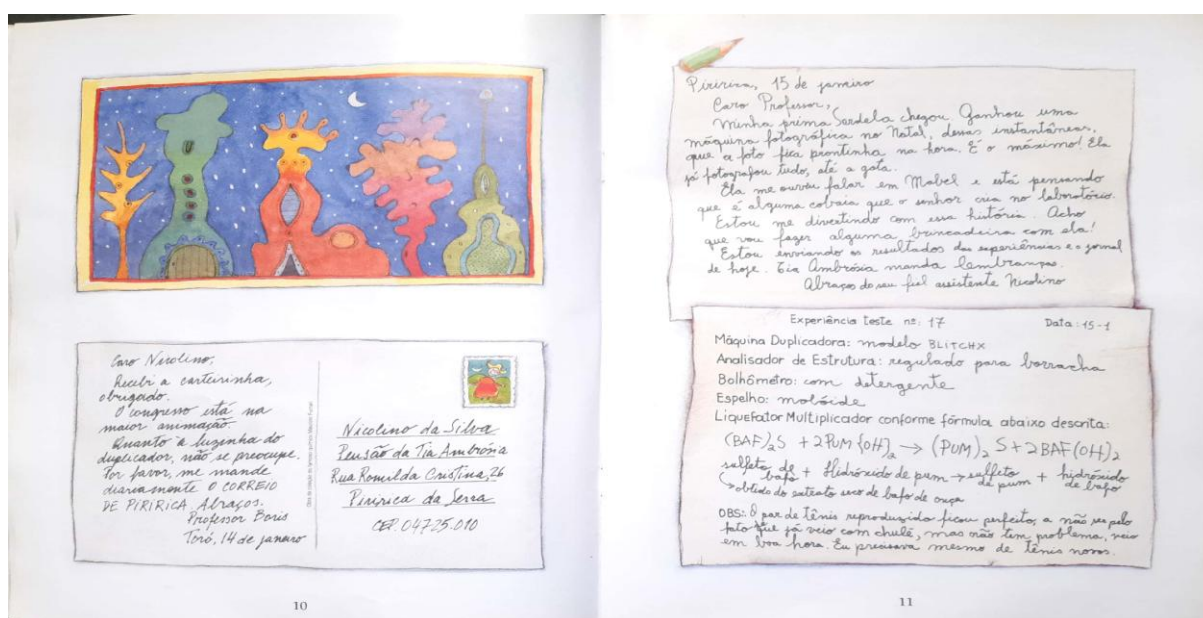 Caro Nicolino,
Recebi a carteirinha,
obrigado.
O congresso está na
maior animação.
Quanto à luzinha do
duplicador, não se preocupe.
Por favor, me mande
diariamente O CORREIO
DE PIRIRICA. Abraços.
Professor Boris
Toró, 14 de janeiro
Nicolino da Silva
Pensão da Tia Ambrósia
Rua Romilda Cristina, 26
Piririca da Serra
CEP. 04725.010
10
Piririca, 15 de janeiro
Caro Professor,
Minha prima Sardela chegou. Ganhou uma
máquina fotográfica no Natal, dessas instantâneas,
que a foto fica prontinha na hora. É o máximo! Ela
já fotografou tudo, até a gata.
Ela me ouviu falar em Mabel e está pensando
que é alguma cobaia que o senhor cria no laboratório.
Estou me divertindo com essa história. Acho
que vou fazer alguma brincadeira com ela!
Estou enviando os resultados das experiências e o jornal
de hoje. Tia Ambrósia manda lembranças.
Abraços do seu fiel assistente Nicolino
Experiência teste nº: 17 Data: 15-1
Máquina Duplicadora: modelo BLITCHX
Analisador de Estrutura: regulado para borracha
Bolhômetro: com detergente
Espelho: mobóide
Liquefator Multiplicador conforme fórmula abaixo descrita:
(BAF)₂S + 2PUM{OH}₂ → (PUM)₂S + 2BAF(OH)₂
sulfeto de bafo + Hidróxido de pum → sulfeto de pum + hidróxido de bafo
obtido do extrato seco de bafo de onça
OBS: O par de tênis reproduzido ficou perfeito, a não ser pelo
fato que já veio com chulé, mas não tem problema, veio
em boa hora. Eu precisava mesmo de tênis novos.
11